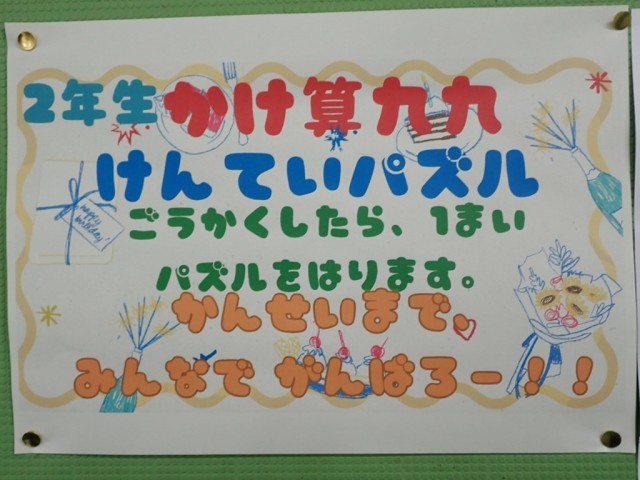 2年生かけ算九九
けんていパズル
ごうかくしたら、1まい
パズルをはります。
かんせいまで、
みんなで がんばろー！！
happy birthday!